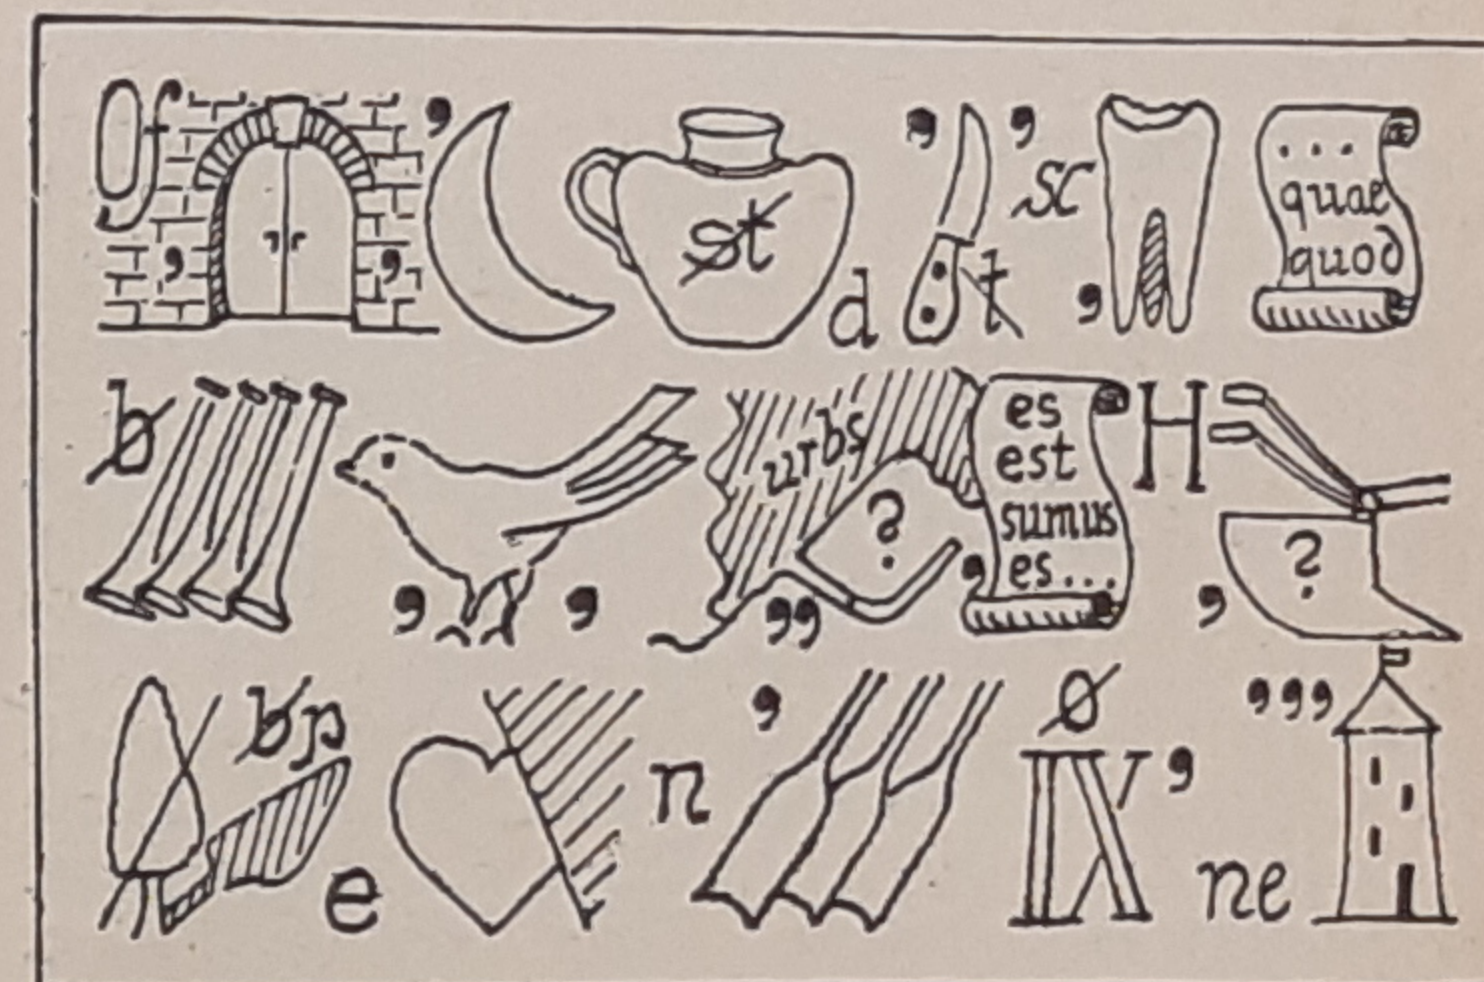 , , , st d , t , sc , ... quae quod
b , , urbs ? ,, , es est sumus es... H , ?
bp e n , o IX , ne ,,,